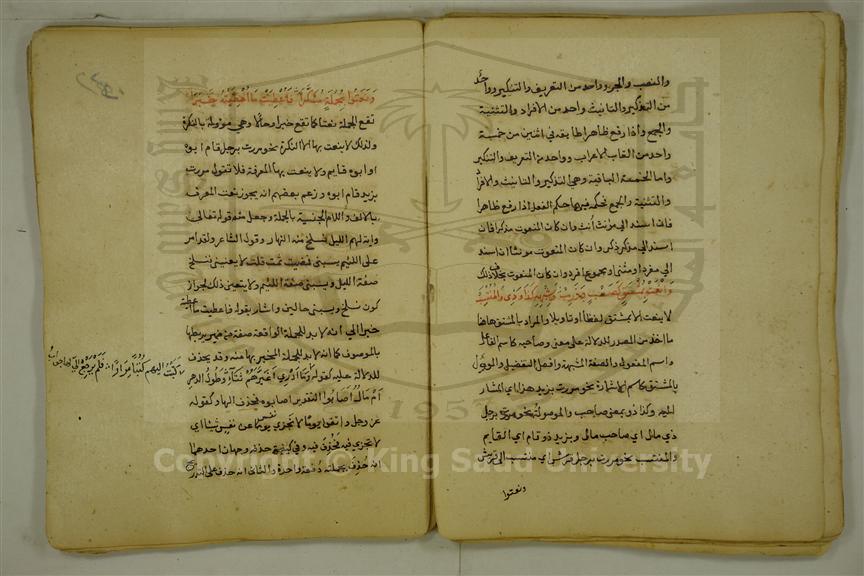 والنصب والجر وواحد من التعريف والتنكير وواحد
من التذكير والتانيث وواحد من الافراد والتثنية
والجمع واذا رفع ظاهرا طابقه في اثنين من خمسة
واحد من القاب الاعراب وواحد من التعريف والتنكير
واما الخمسة الباقية وهي التذكير والتانيث والافراد
والتثنية والجمع فحكمه فيها حكم الفعل اذا رفع ظاهرا
فان اسند الى مؤنث انث وان كان المنعوت مذكرا فان
اسند الى مذكر ذكر وان كان المنعوت مؤنثا وان اسند
الى مفرد او مثنى او مجموع افرد وان كان المنعوت بخلاف ذلك
وانعت بمشتق كصعب وذرب وشبهه كذا وذي والمنتسب
لا ينعت الا بمشتق لفظا او تاويلا والمراد بالمشتق هاهنا
ما اخذ من المصدر للدلالة على معنى وصاحبه كاسم الفاعل
واسم المفعول والصفة المشبهة وافعل التفضيل والمؤول
بالمشتق كاسم الاشارة نحو مررت بزيد هذا اي المشار
اليه وكذا ذو بمعنى صاحب والموصولة نحو مررت برجل
ذي مال اي صاحب مال وبزيد ذو قام اي القايم
والمنتسب نحو مررت برجل قرشي اي منتسب الى قريش
ونعتوا
ونعتوا بجملة منكرا فاعطيت ما اعطيته خبرا
تقع الجملة نعتا كما تقع خبرا وحالا وهي مؤولة بالنكرة
ولذلك لا ينعت بها الا النكرة نحو مررت برجل قام ابوه
او ابوه قايم ولا ينعت بها المعرفة فلا تقول مررت
بزيد قام ابوه وزعم بعضهم انه يجوز نعت المعرف
بالالف واللام الجنسية بالجملة وجعل منه قوله تعالى
واية لهم الليل نسلخ منه النهار وقول الشاعر ولقد امر
على اللئيم يسبني فمضيت ثمت قلت لا يعنيني فنسلخ
صفة الليل ويسبني صفة اللئيم ولا يتعين ذلك لجواز
كون نسلخ ويسبني حالين واشار بقوله فاعطيت ما اعطيته
خبرا الى انه لا بد للجملة الواقعة صفة من ضمير يربطها
بالموصوف كما انه لا بد للجملة المخبر بها منه وقد يحذف
للدلالة عليه كقوله وما ادري اغيرهم تناء وطول الدهر
ام مال اصابوا التقدير اصابوه فحذف الهاء وكقوله
عز وجل واتقوا يوما لا تجزي نفس عن نفس شيئا اي
لا تجزي فيه فحذف فيه وفي كيفية حذفه وجهان احدهما
انه حذف بجملته دفعة واحدة والثاني انه حذف على التدريج
كتبت اليهم كتبا مرارا فلم يرجع الي لها جواب
Copyright © King Saud University
1957